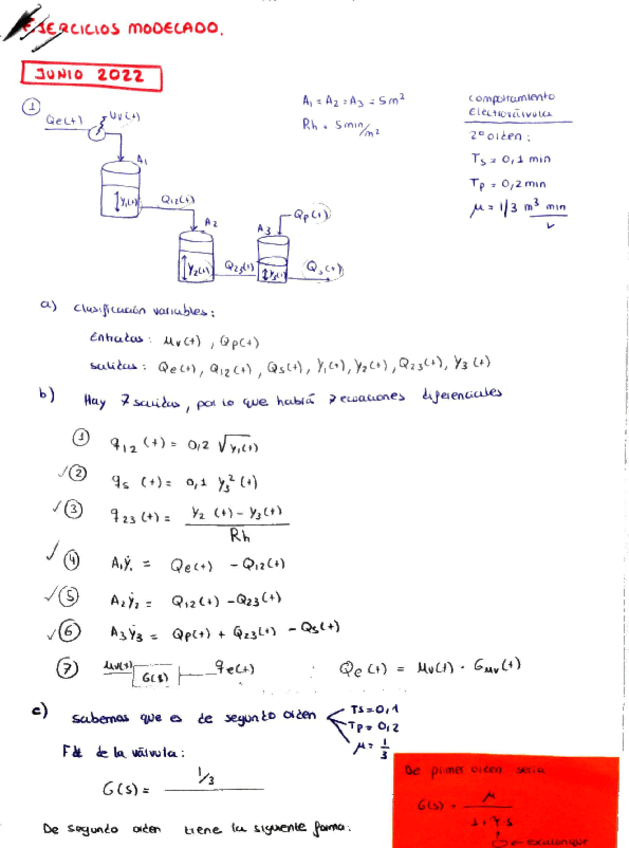 EJERCICIOS MODELADO.
JUNIO 2022
①
Qe(t)
Uv(t)
A1
Y1(t)
Q12(t)
A2
Y2(t)
Q23(t)
A3
Qp(t)
Y3(t)
Qs(t)
A1 = A2 = A3 = 5m²
Rh = 5min/m²
comportamiento
Electroválvula
2º orden:
Ts = 0,1 min
Tp = 0,2 min
μ = 1/3 m³ min / v
a) clasificación variables:
Entradas: μv(t), Qp(t)
salidas: Qe(t), Q12(t), Qs(t), Y1(t), Y2(t), Q23(t), Y3(t)
b) Hay 7 salidas, por lo que habrá 7 ecuaciones diferenciales
① q12(t) = 0,2 √y1(t)
✓② qs (t) = 0,1 y3²(t)
✓③ q23(t) = y2 (t) - y3(t) / Rh
✓④ A1ẏ1 = Qe(t) - Q12(t)
✓⑤ A2ẏ2 = Q12(t) - Q23(t)
✓⑥ A3ẏ3 = Qp(t) + Q23(t) - Qs(t)
⑦ μv(t) G(s) qe(t) : Qe(t) = μv(t) · Gμv(t)
c) sabemos que es de segundo orden
Ts=0,1
Tp=0,2
μ= 1/3
Fdt de la válvula:
G(s) = 1/3
De segundo orden tiene la siguiente forma:
De primer orden sería
G(s) = μ